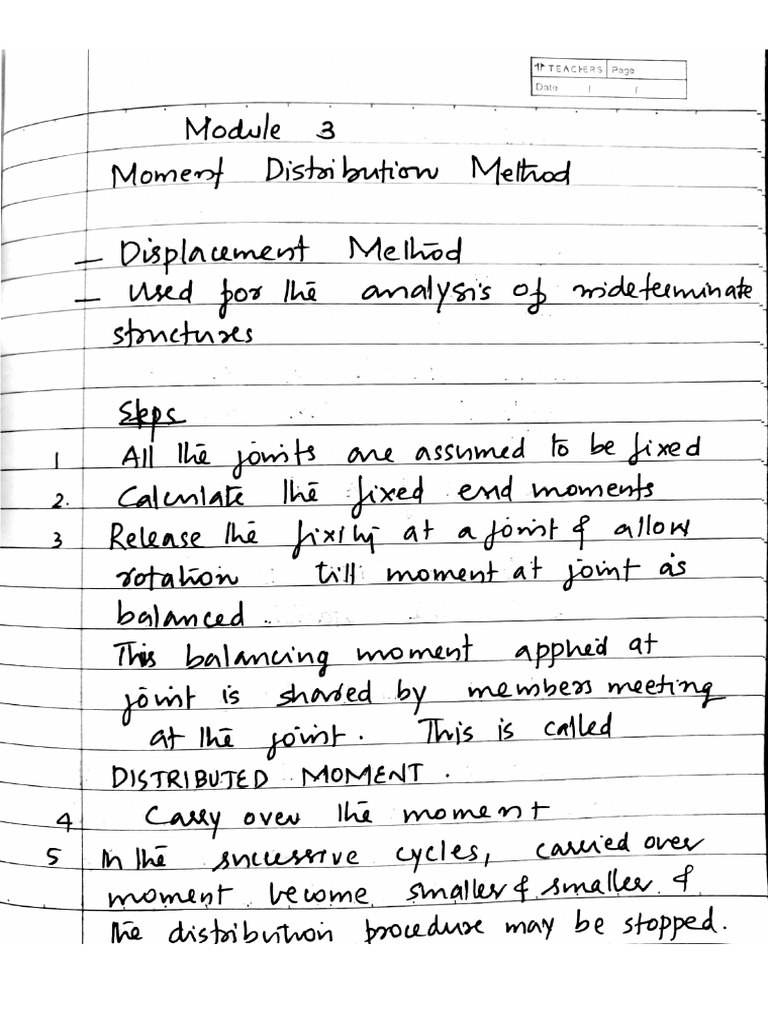 TEACHERS Page
Date / /
Module 3
Moment Distribution Method
– Displacement Method
– Used for the analysis of indeterminate
structures
Steps
1 All the joints are assumed to be fixed
2. Calculate the fixed end moments
3 Release the fixity at a joint & allow
rotation till moment at joint is
balanced.
This balancing moment applied at
joint is shared by members meeting
at the joint. This is called
DISTRIBUTED MOMENT.
4 Carry over the moment
5 In the successive cycles, carried over
moment become smaller & smaller &
the distribution procedure may be stopped.